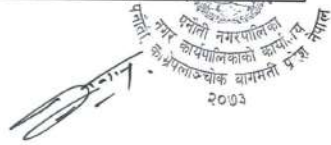 पनौती नगरपालिका
नगर कार्यपालिकाको कार्यालय
काभ्रेपलाञ्चोक बागमती प्रदेश नेपाल
पनौती,
२०७३